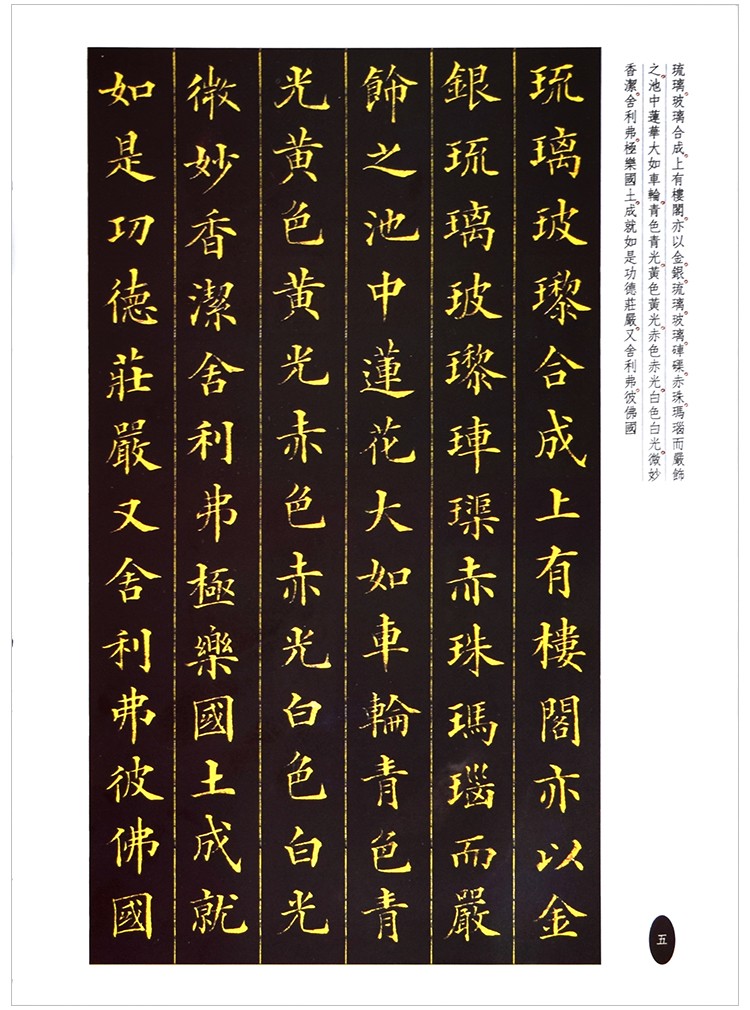 琉璃玻璃合成上有樓閣亦以金銀琉璃玻璃硨磲赤珠瑪瑙而嚴飾
之池中蓮華大如車輪青色青光黃色黃光赤色赤光白色白光微妙
香潔舍利弗極樂國土成就如是功德莊嚴又舍利弗彼佛國
琉璃玻瓈合成上有樓閣亦以金
銀琉璃玻瓈𤥭璖赤珠瑪瑙而嚴
飾之池中蓮花大如車輪青色青
光黃色黃光赤色赤光白色白光
微妙香潔舍利弗極樂國土成就
如是功德莊嚴又舍利弗彼佛國
五